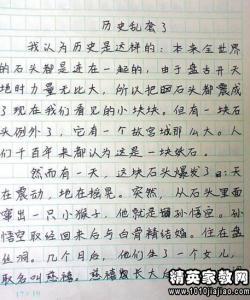 历史乱套了
我认为历史是这样的：本来全世界
的石头都是连在一起的，由于盘古开天
地时力量无比大，所以把石头都震成
了现在我们看见的小块块。但有一块石
头例外了，它有一个故宫城那么大。人
们千百年来都认为这是一块妖石。
然而有一天，这块石头爆发了：天
在震动，地在摇晃。突然，从石头里面
窜出一只小猴子，他就是猢孙悟空。孙
悟空取经回来后与白骨精结婚。住在盘
丝洞。几个月后，他们生了一个女儿，
取名叫慈禧。慈禧
长大
精英家教网
www.1010jiajiao.com